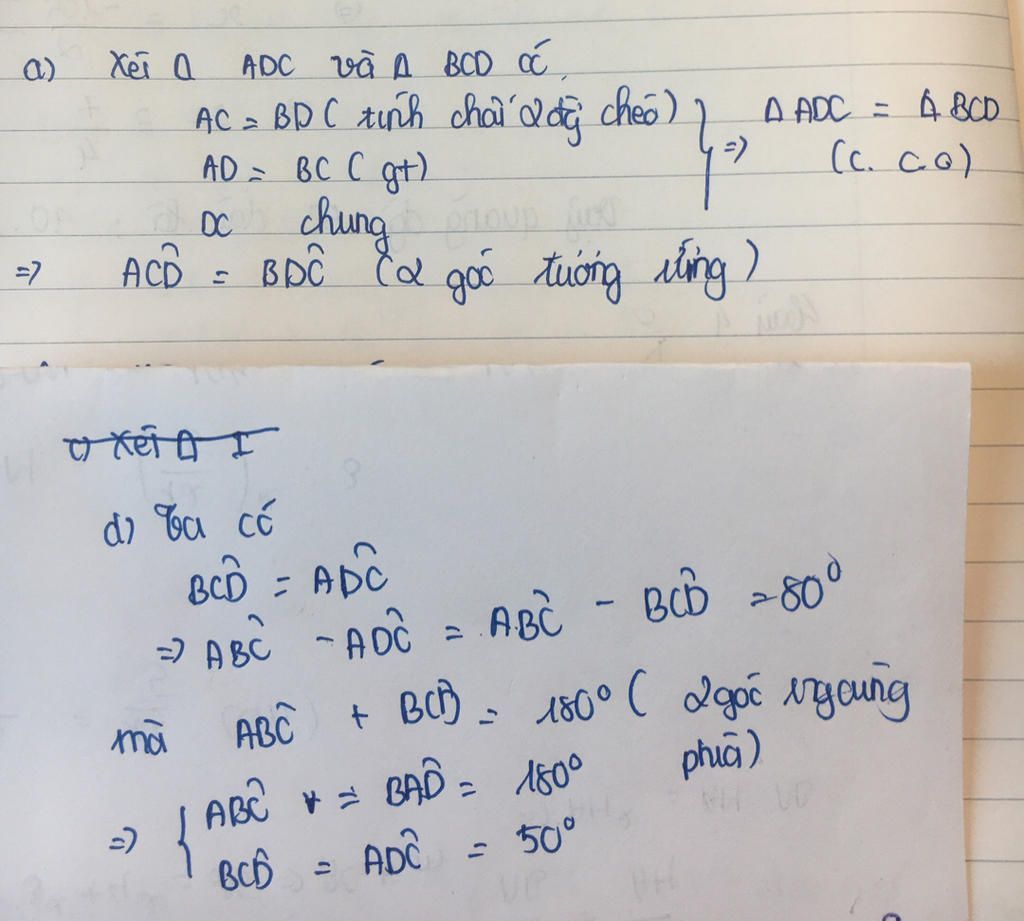 a) Xét Δ ADC và Δ BCD có
AC = BD ( tính chất 2 đg chéo ) } => Δ ADC = Δ BCD
AD = BC ( gt ) (c. c. c)
DC chung
=> ACD̂ = BDĈ (2 góc tương ứng )
c) Xét Δ I
d) Ta có
BCD̂ = ADĈ
=> ABĈ - ADĈ = ABĈ - BCD̂ = 80°
mà ABĈ + BCD̂ = 180° ( 2 góc trg cùng
phía )
=> { ABĈ = BAD̂ = 180°
BCD̂ = ADĈ = 50°